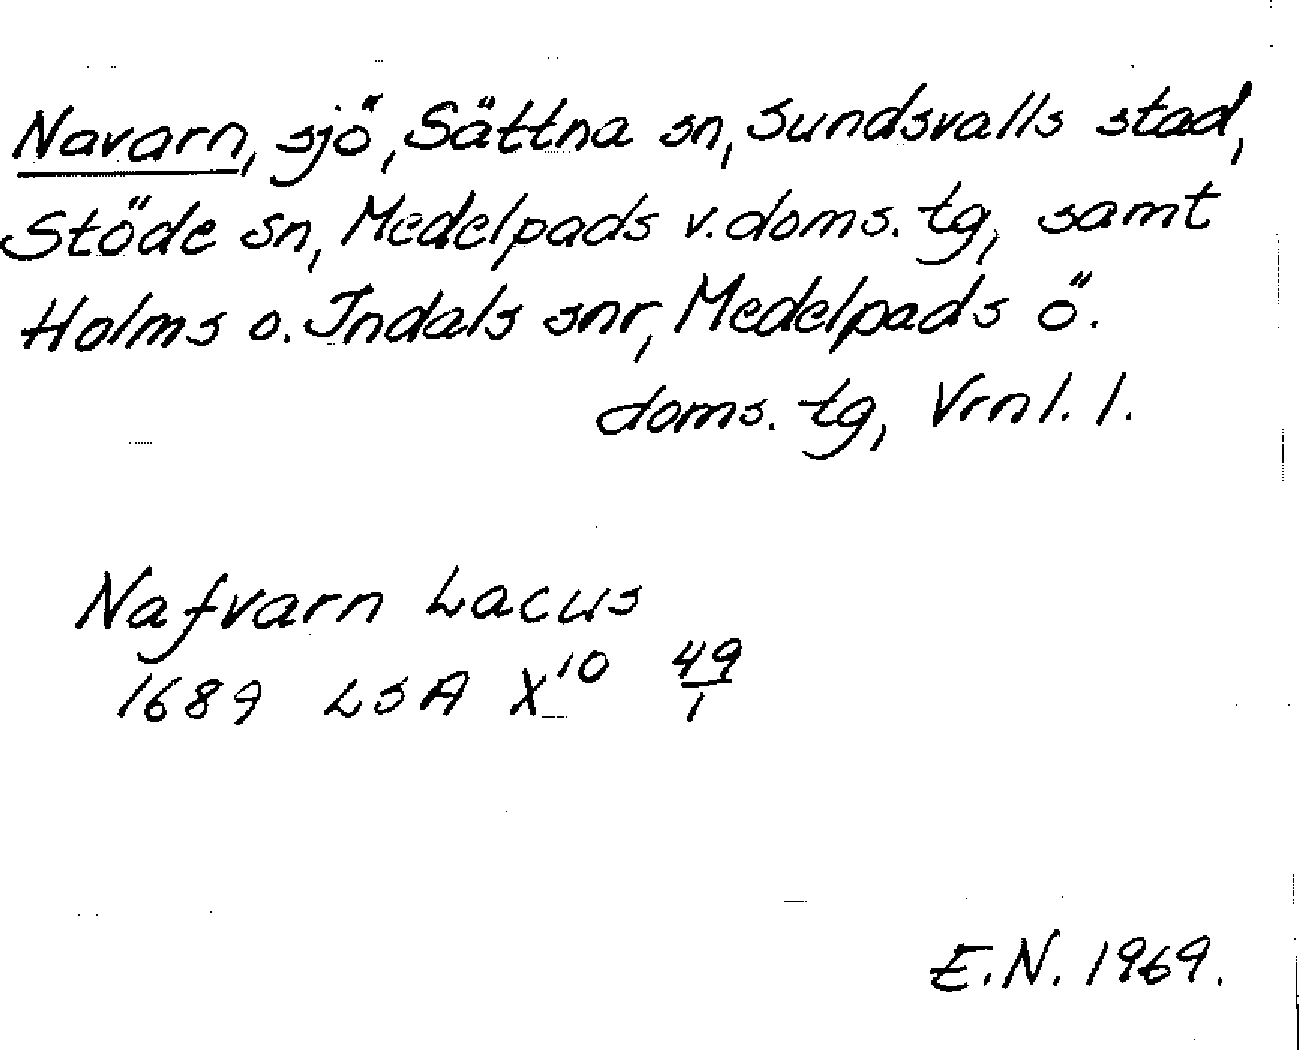 Navarn, sjö, Sättna sn, Sundsvalls stad,
Stöde sn, Medelpads v. doms. tg, samt
Holms o. Indals snr, Medelpads ö.
doms. tg, Vrnl. l.
Nafvarn Lacus
1689 LSA X¹⁰ 49/1
E.N. 1969.